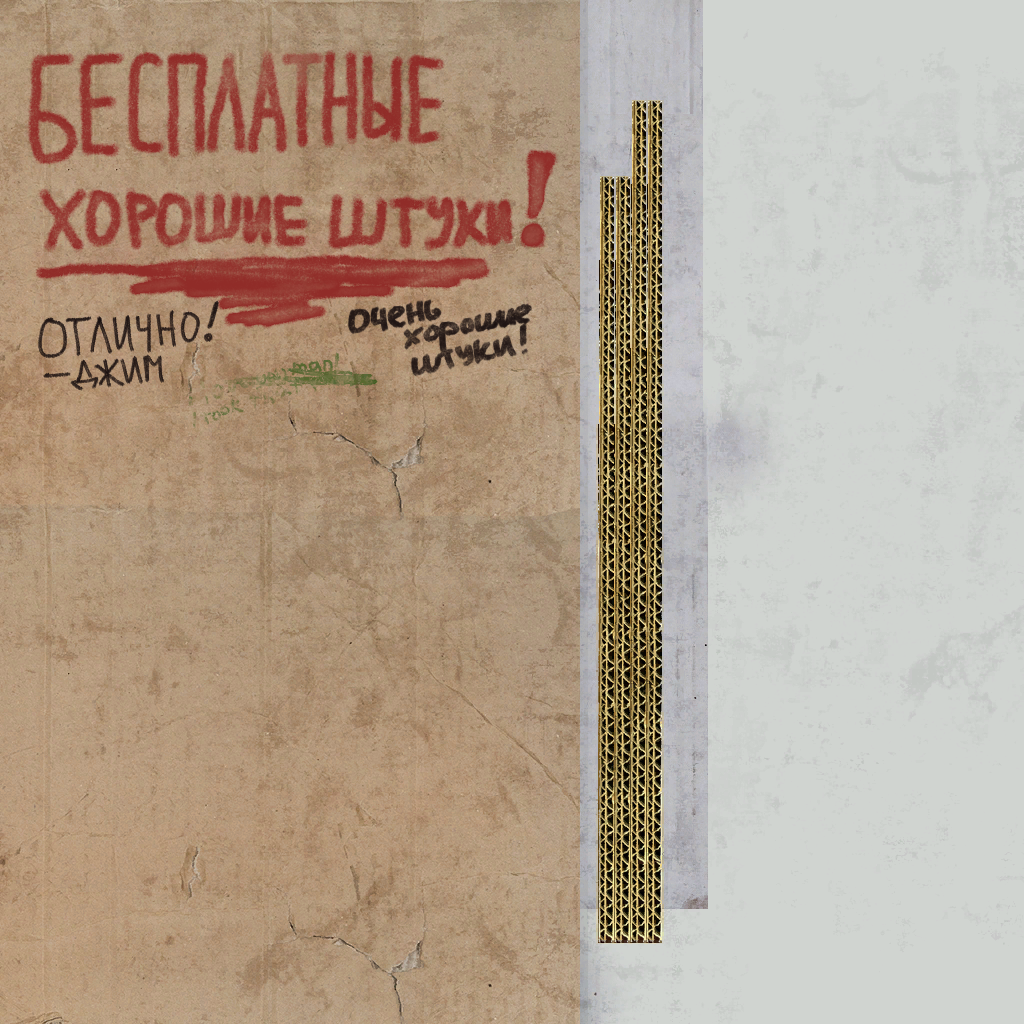 БЕСПЛАТНЫЕ
ХОРОШИЕ ШТУКИ!
ОТЛИЧНО!
—ДЖИМ
ОЧЕНЬ
хорошие
штуки!